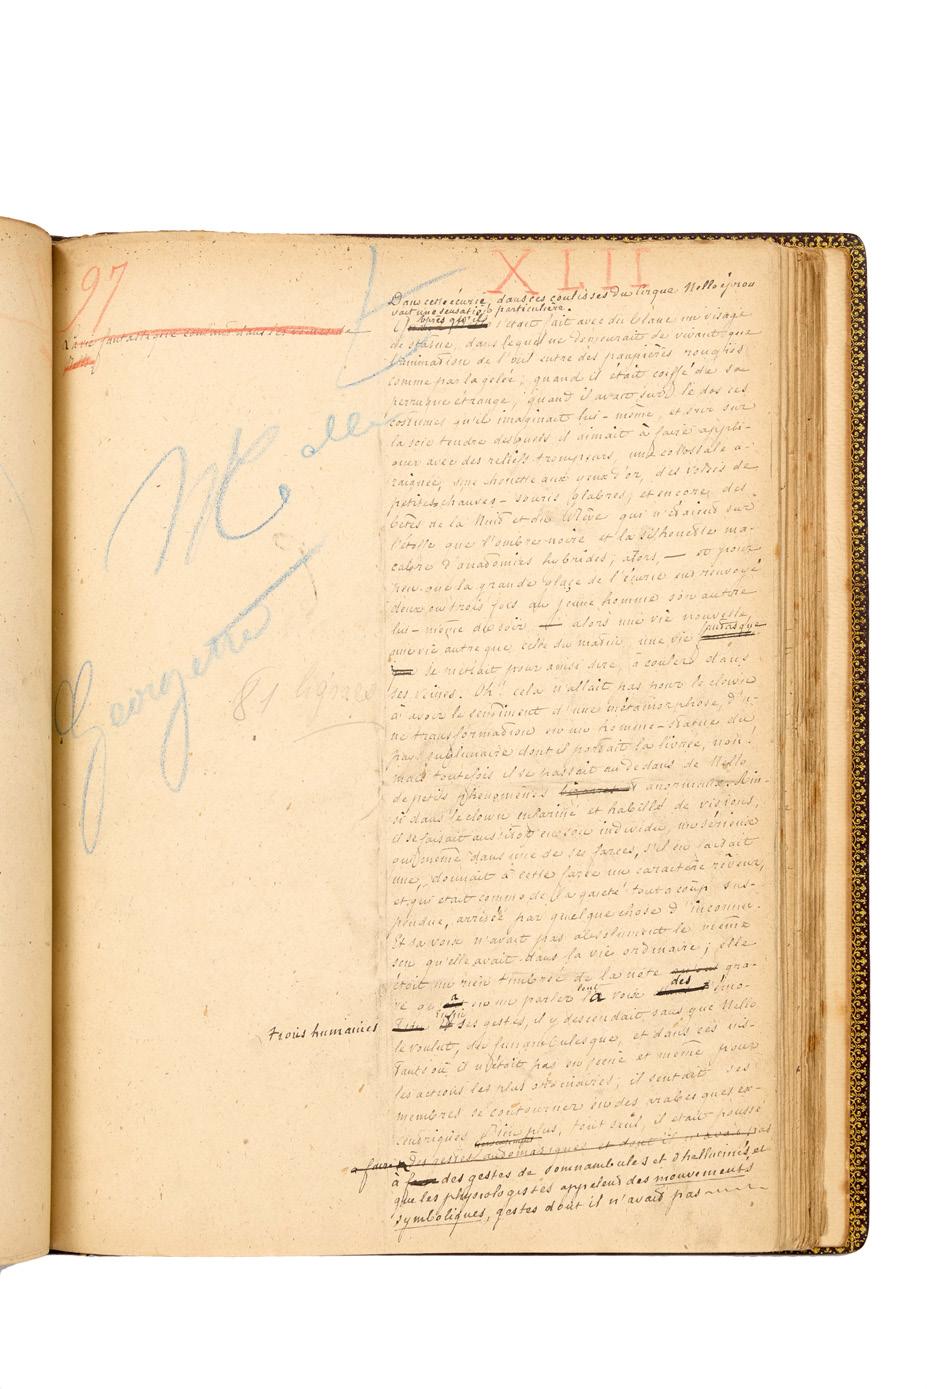 97
XLII
Melle
Georgette
81 lignes
Dans cette écurie, dans ces coulisses du Cirque Nello éprou
vait une sensation particulière.
Après qu'il s'était fait avec du blanc un visage
de statue, dans lequel ne demeurait de vivant que
l'animation de l'œil entre des paupières rougies
comme par la gelée; quand il était coiffé de sa
perruque étrange; quand il avait sur le dos ces
costumes qu'il imaginait lui-même, et sur
la soie tendre desquels il aimait à faire appli-
quer avec des reliefs trompeurs, une colossale a-
raignée, une chouette aux yeux d'or, des volées de
petites chauves-souris glabres, et encore des
bêtes de la Nuit et du Rêve qui n'étaient sur
l'étoffe que l'ombre noire et la silhouette ma-
cabre d'anatomies hybrides; alors, — et pour
peu que la grande glace de l'écurie eut renvoyé
deux ou trois fois au jeune homme son autre
lui-même du soir — alors une vie nouvelle,
une vie autre que celle du matin, une vie fantasque
se mettait pour ainsi dire, à couler dans
ses veines. Oh! cela n'allait pas pour le clown
à avoir le sentiment d'une métamorphose, d'u-
ne transformation en un homme-statue du
pays sublunaire dont il portait la livrée, non!
mais toutefois il se passait au dedans de Nello
de petits phénomènes anormaux. Ain-
si dans le clown enfariné et habillé de visions,
il se faisait aussitôt en son individu, un sérieux
qui même dans une de ses farces, s'il en faisait
une, donnait à cette farce un caractère rêveur,
et qui était comme de la gaieté tout à coup sus-
pendue, arrêtée par quelque chose d'inconnu.
Et sa voix n'avait pas absolument le même
son qu'elle avait dans la vie ordinaire; elle
était un rien timbrée de la note gra-
ve
a voix des émo-
trous humaines
ses gestes, il y descendait sans que Nello
le voulut, du funambulesque, et dans ces ins-
tants où il n'était pas en scène et même pour
les actions les plus ordinaires, il sentait ses
membres se contourner en des arabesques ex-
centriques. Bien plus, tout seul, il était poussé
à faire des gestes automatiques et dont il n'avait pas
à des gestes de somnambules et d'hallucinés, et
que les physiologistes appellent des mouvements
symboliques, gestes dont il n'avait pas